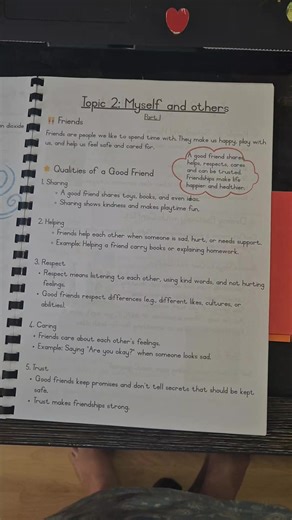 Topic 2: Myself and others
Part 1
Friends
Friends are people we like to spend time with. They make us happy, play with
us, and help us feel safe and cared for.
A good friend shares,
helps, respects, cares
and can be trusted.
Friendships make life
happier and healthier.
Qualities of a Good Friend
1. Sharing
• A good friend shares toys, books, and even ideas.
• Sharing shows kindness and makes playtime fun.
2. Helping
• Friends help each other when someone is sad, hurt, or needs support.
• Example: Helping a friend carry books or explaining homework.
3. Respect
• Respect means listening to each other, using kind words, and not hurting
feelings.
• Good friends respect differences (e.g., different likes, cultures, or
abilities).
4. Caring
• Friends care about each other's feelings.
• Example: Saying "Are you okay?" when someone looks sad.
5. Trust
• Good friends keep promises and don't tell secrets that should be kept
safe.
• Trust makes friendships strong.